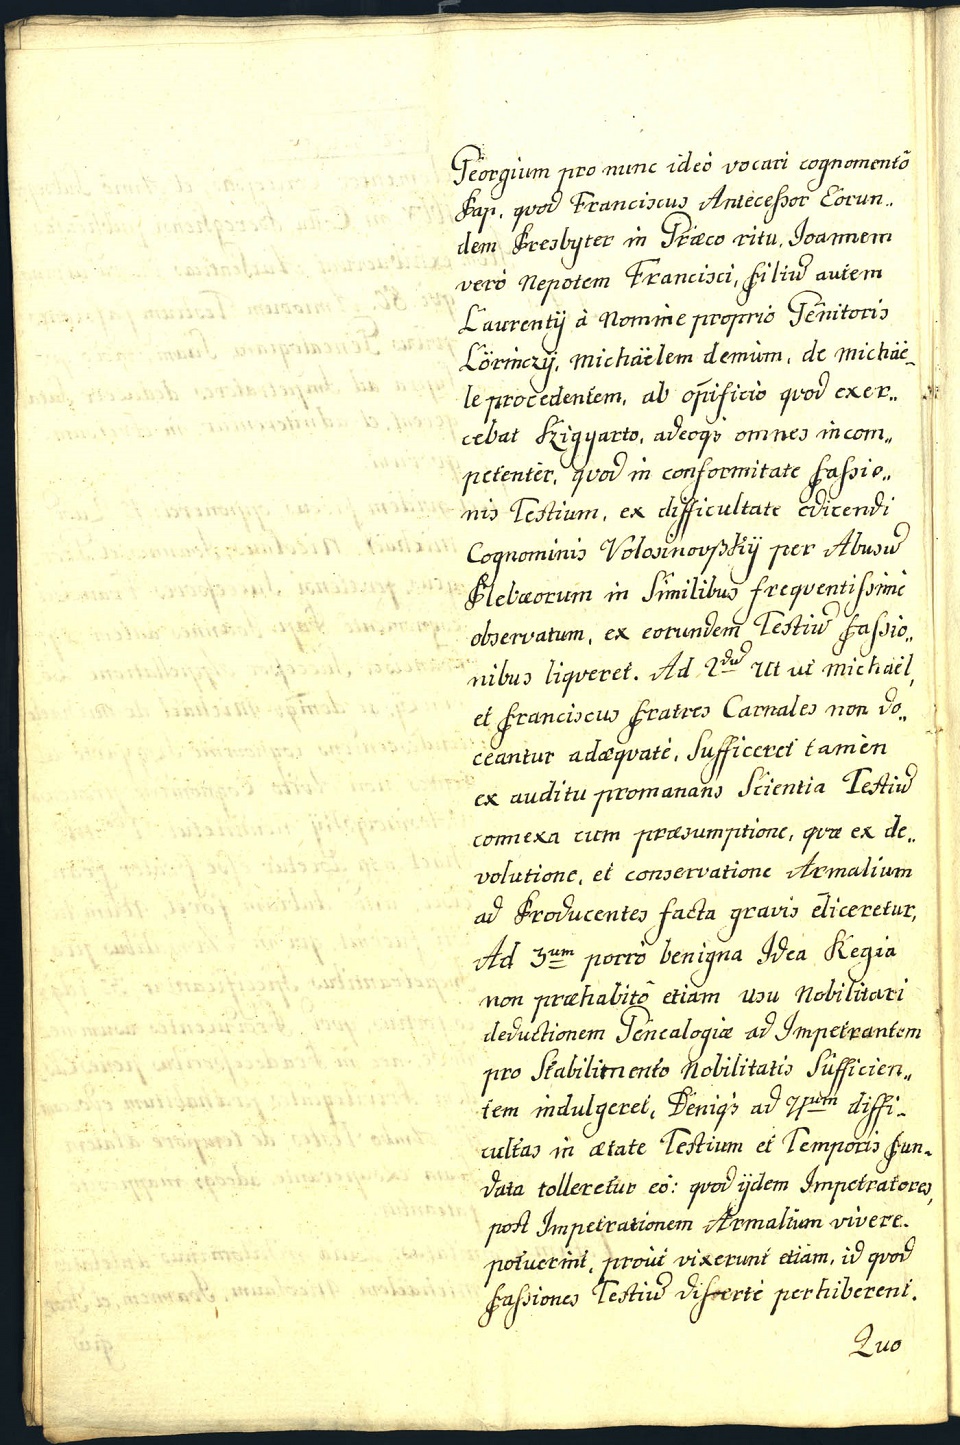 Georgium pro nunc ideò vocari cognomentō
Pap, quod Franciscus Antecessor Eorun„
dem Presbyter in Græco ritu, Joannem
verò Nepotem Francisci, filiū autem
Laurentÿ à Nomine proprio Genitoris
Lörinczÿ, Michäelem demùm, de Michäe„
le procedentem, ab opificio quod exer„
cebat Szigyarto, adeoqȝ omnes incom„
petentèr, quod in conformitate fassio„
nis Testium, ex difficultate edicendi
Cognominis Volosinovßkÿ per Abusū
Plebæorum in Similibus frequentissimè
observatum, ex eorundem Testiū fassio„
nibus liqveret. Ad 2dū Ut ut Michäel,
et franciscus fratres Carnales non do„
ceantur adæqvatè, Sufficeret tamèn
ex auditu promanans Scientia Testiū
connexa cum præsumptione, quæ ex de„
volutione, et conservatione Armalium
ad Producentes facta gravis eliceretur,
Ad 3um porrò benigna Idea Regia
non præhabitō etiam usu Nobilitari
deductionem Genealogiæ ad Impetrantem
pro Stabilimento Nobilitatis Sufficien„
tem indulgeret, Deniqȝ ad 4um diffi„
cultas in ætate Testium et Temporis fun„
data tolleretur eò: quod ÿdem Impetratores,
post Impetrationem Armalium vivere
potuerint, proùt vixerunt etiam, id quod
fassiones Testiū disertè perhiberent.
Quo